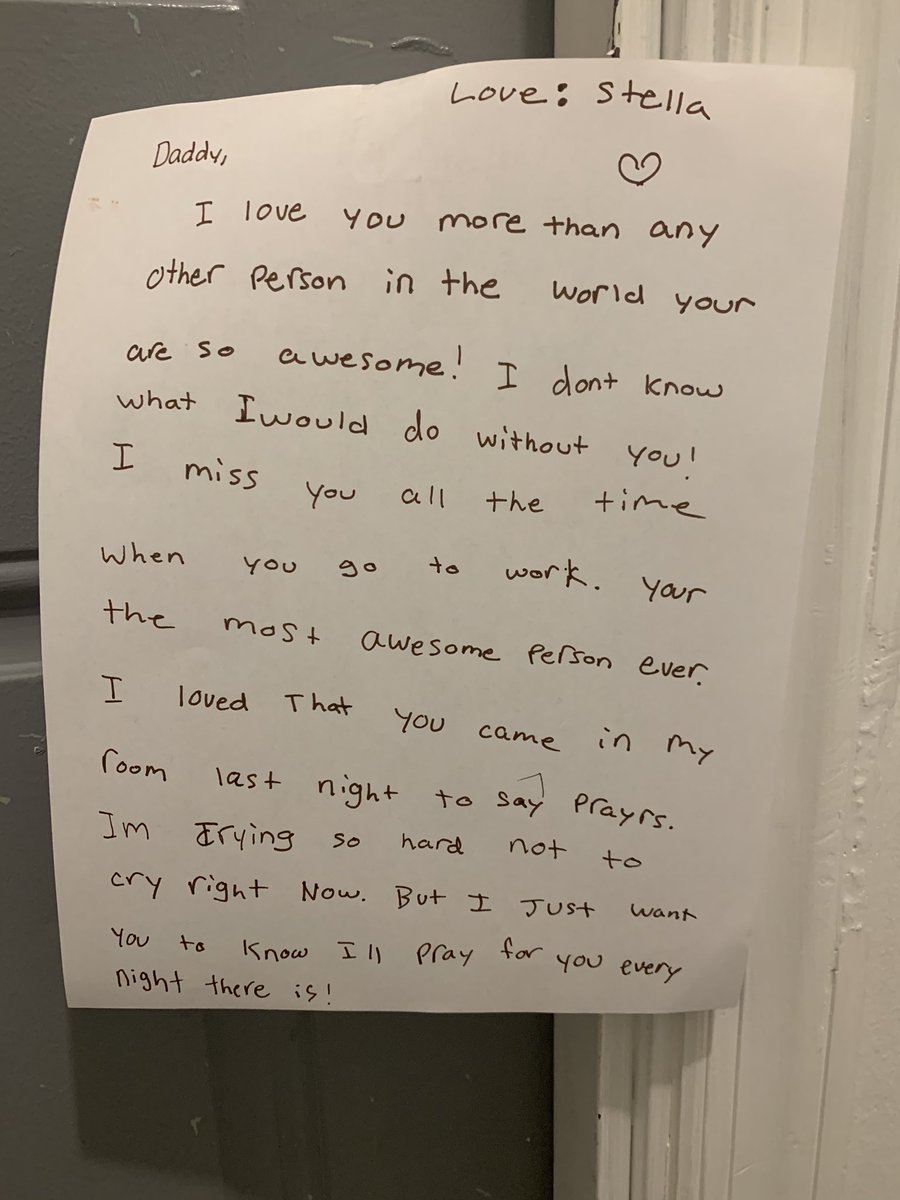 Love: Stella
Daddy,
I love you more than any
other person in the world your
are so awesome! I dont know
what I would do without you!
I miss you all the time
when you go to work. your
the most awesome person ever.
I loved That you came in my
room last night to say prayrs.
Im trying so hard not to
cry right Now. But I Just want
you to know Ill pray for you every
night there is!